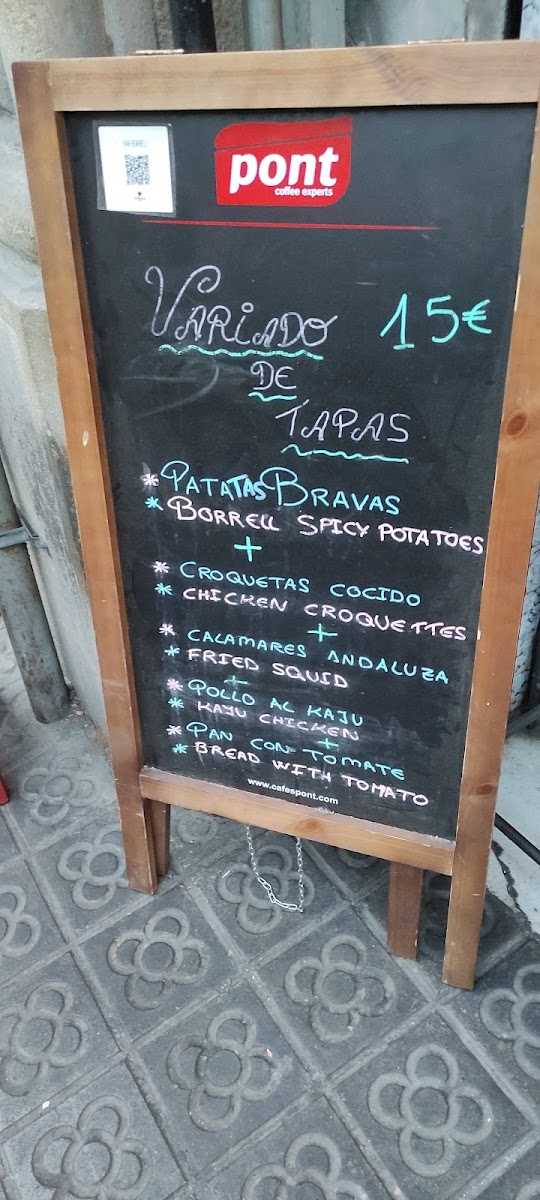 BAR BORRELL
pont
coffee experts
VARIADO 15€
DE
TAPAS
* PATATAS BRAVAS
* BORRELL SPICY POTATOES
+
* CROQUETAS COCIDO
* CHICKEN CROQUETTES
+
* CALAMARES ANDALUZA
* FRIED SQUID
+
* POLLO AL KAJU
* KAJU CHICKEN
+
* PAN CON TOMATE
* BREAD WITH TOMATO
www.cafespont.com